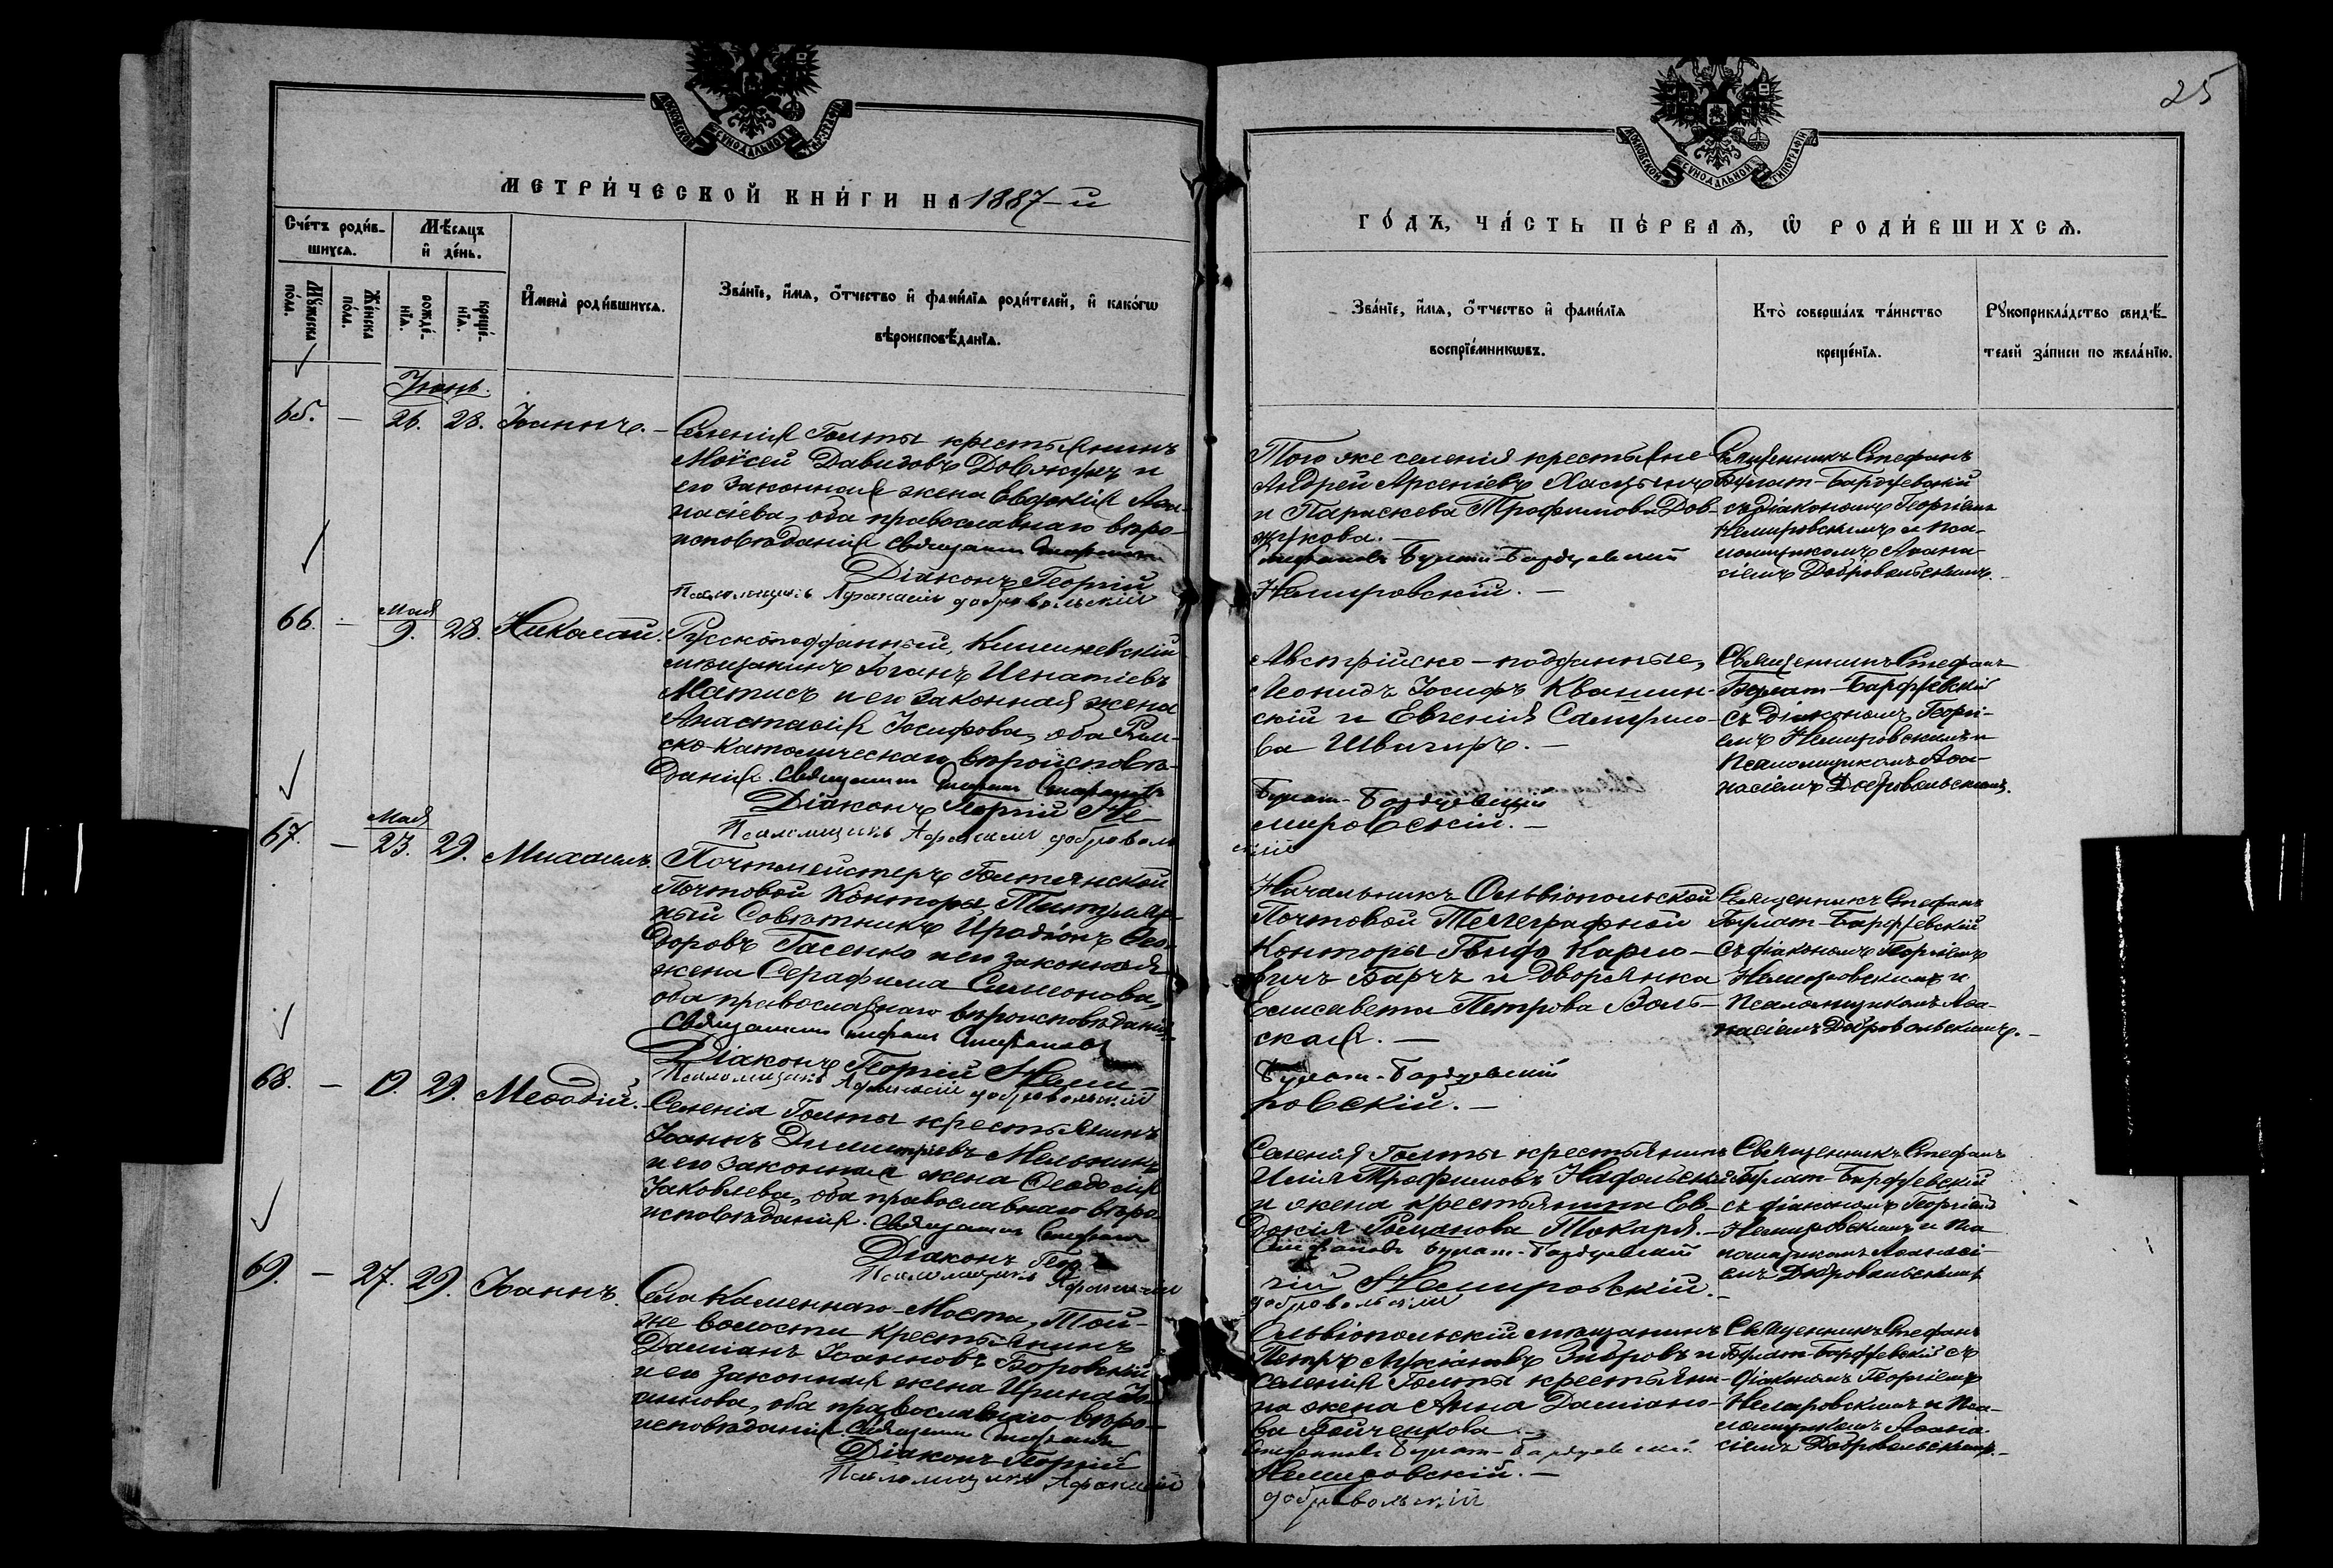 25
МОСКОВСКОЙ СѴНОДАЛЬНОЙ ТИПОГРАФІИ
МОСКОВСКОЙ СѴНОДАЛЬНОЙ ТИПОГРАФІИ
МЕТРИ́ЧЕСКОЙ КНИ́ГИ НА 1887-й
ГО́ДЪ, ЧА́СТЬ ПЕ́РВАѦ, Ѿ РОДИ́ВШИХСѦ.
Сче́тъ роди́в-
шихсѧ.
Мѣ́сѧцъ
и҆ де́нь.
Мꙋ́жеска
по́ла.
Же́нска
по́ла.
рожде́-
нїѧ.
креще́-
нїѧ.
И҆мена̀ роди́вшихсѧ.
Зва́нїе, и҆́мѧ, ѻ҆́тчество и҆ фами́лїѧ роди́телей, и҆ како́гѡ
вѣроисповѣ́данїѧ.
Зва́нїе, и҆́мѧ, ѻ҆́тчество и҆ фами́лїѧ
воспрїе́мникѡвъ.
Кто̀ соверша́лъ та́инство
креще́нїѧ.
Рꙋкоприкла́дство свидѣ́-
телей за́писи по жела́нїю.
Іюнь.
65. — 26. 28. Іоаннъ. —
Селенія Голты крестьянинъ
Моѵсей Давидовъ Довжукъ и
его законная жена Евдокія Аѳа-
насіева, оба православнаго вѣро-
исповѣданія Священникъ
Діаконъ Георгій
Псаломщикъ Афанасій Добровольскій
Того же селенія крестьяне
Андрей Арсеніевъ
и Параскева Трофимова Дов-
жукова. —
Стефановъ Булат-Бардзевскій
Немировскій. —
Священникъ Стефанъ
Булат-Бардзевскій
съ діакономъ Георгіемъ
Немировскимъ и пса-
ломщикомъ Аѳана-
сіемъ Добровольскимъ.
66. — Мая 9. 28. Николай.
Русскоподданный, Кишиневскій
мѣщанинъ Іоганъ Игнатіевъ
Матисъ и его законная жена
Анастасія Іосифова, оба Рим-
ско-католическаго вѣроисповѣ-
данія. Священникъ Стефанъ Стефановъ
Діаконъ Георгій Не-
Псаломщикъ Афанасій Доброволь
Австрійско-подданные,
Леонидъ Іосифъ Квашин-
скій и Евгенія
ва
Булат-Бардзевскій
мировскій. —
скій
Священникъ Стефанъ
Булат-Бардзевскій
съ діакономъ Георгі-
емъ Немировскимъ и
Псаломщикомъ Аѳа-
насіемъ Добровольскимъ.
67. — Мая 23. 29. Михаилъ.
Почтмейстеръ Голтянской
Почтовой Конторы, Титуляр-
ный Совѣтникъ Иродіонъ Ѳео-
доровъ Гасенко и его законная
жена Серафима Симеонова,
оба православнаго вѣроисповѣданія.
Священникъ Стефанъ Стефановъ
Діаконъ Георгій Неми-
Псаломщикъ Афанасій Добровольскій
Начальникъ Ольвіопольской
Почтовой Телеграфной
Конторы Карло-
вичъ Барчъ и Дворянка
Елисавета Петрова Воль-
ская. —
Булат-Бардзевскій
ровскій. —
Священникъ Стефанъ
Булат-Бардзевскій
съ діакономъ Георгіемъ
Немировскимъ и
Псаломщикомъ Аѳа-
насіемъ Добровольскимъ. —
68. — 19. 29. Меѳодій.
Селенія Голты крестьянинъ
Іоаннъ Димитріевъ Мельникъ
и его законная жена Ѳеодосія
Іаковлева, оба православнаго вѣро-
исповѣданія. Священникъ Стефанъ
Діаконъ Геор-
Псаломщикъ Афанасій
Селенія Голты крестьянинъ
Илія Трофимовъ
и жена крестьянина Ев-
докія Романова Токаря. —
Стефановъ Булат-Бардзевскій
гій Немировскій. —
Добровольскій
Священникъ Стефанъ
Булат-Бардзевскій
съ діакономъ Георгіемъ
Немировскимъ и пса-
ломщикомъ Аѳанасі-
емъ Добровольскимъ
69. — 27. 29. Іоаннъ.
Села Каменнаго-Моста, Той-
же волости крестьянинъ
Даміанъ Іоанновъ Боровскій
и его законная жена Ирина
оба православнаго вѣро-
исповѣданія. Священникъ Стефанъ
Діаконъ Георгій
Псаломщикъ Афанасій
Ольвіопольскій мѣщанинъ
Петръ Зибровъ и
селенія Голты крестьяни-
на жена Анна Даміано-
ва Бойченкова
Стефановъ Булат-Бардзевскій
Немировскій. —
Добровольскій
Священникъ Стефанъ
Булат-Бардзевскій съ
діакономъ Георгіемъ
Немировскимъ и Пса-
ломщикомъ Аѳана-
сіемъ Добровольскимъ. —